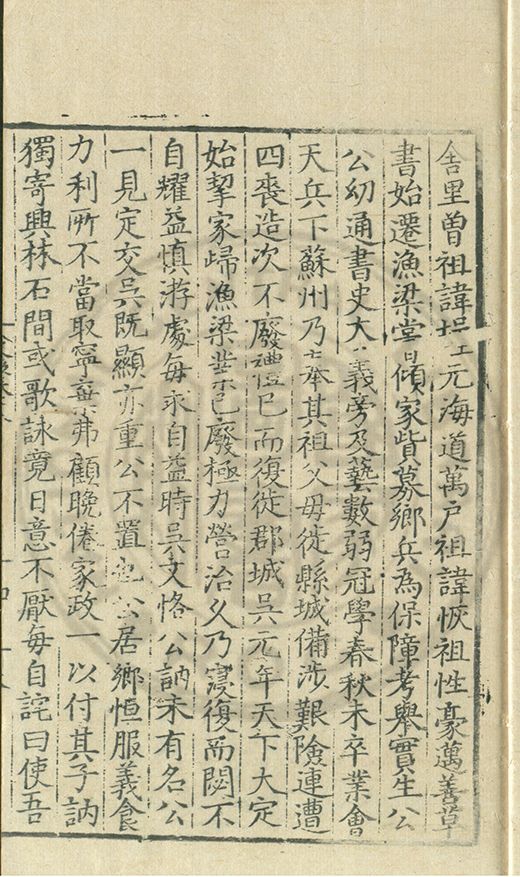 舍里曾祖諱元海道萬戶祖諱恢祖性豪邁善草
書始遷漁梁堂傾家貲募鄉兵為保障考舉實生公
公幼通書史大義旁及藝數弱冠學春秋未卒業會
天兵下蘇州乃奉其祖父母徙縣城備涉艱險連遭
四喪造次不廢禮已而復徙郡城吳元年天下大定
始挈家歸漁梁業已廢極力營治久乃寖復而閟不
自耀益慎游處每求自益時吳文恪公訥未有名公
一見定交吳既顯亦重公不置也公居鄉恒服義食
力利所不當取寧棄弗顧晚倦家政一以付其子訥
獨寄興林石間或歌詠竟日意不厭每自詫曰使吾